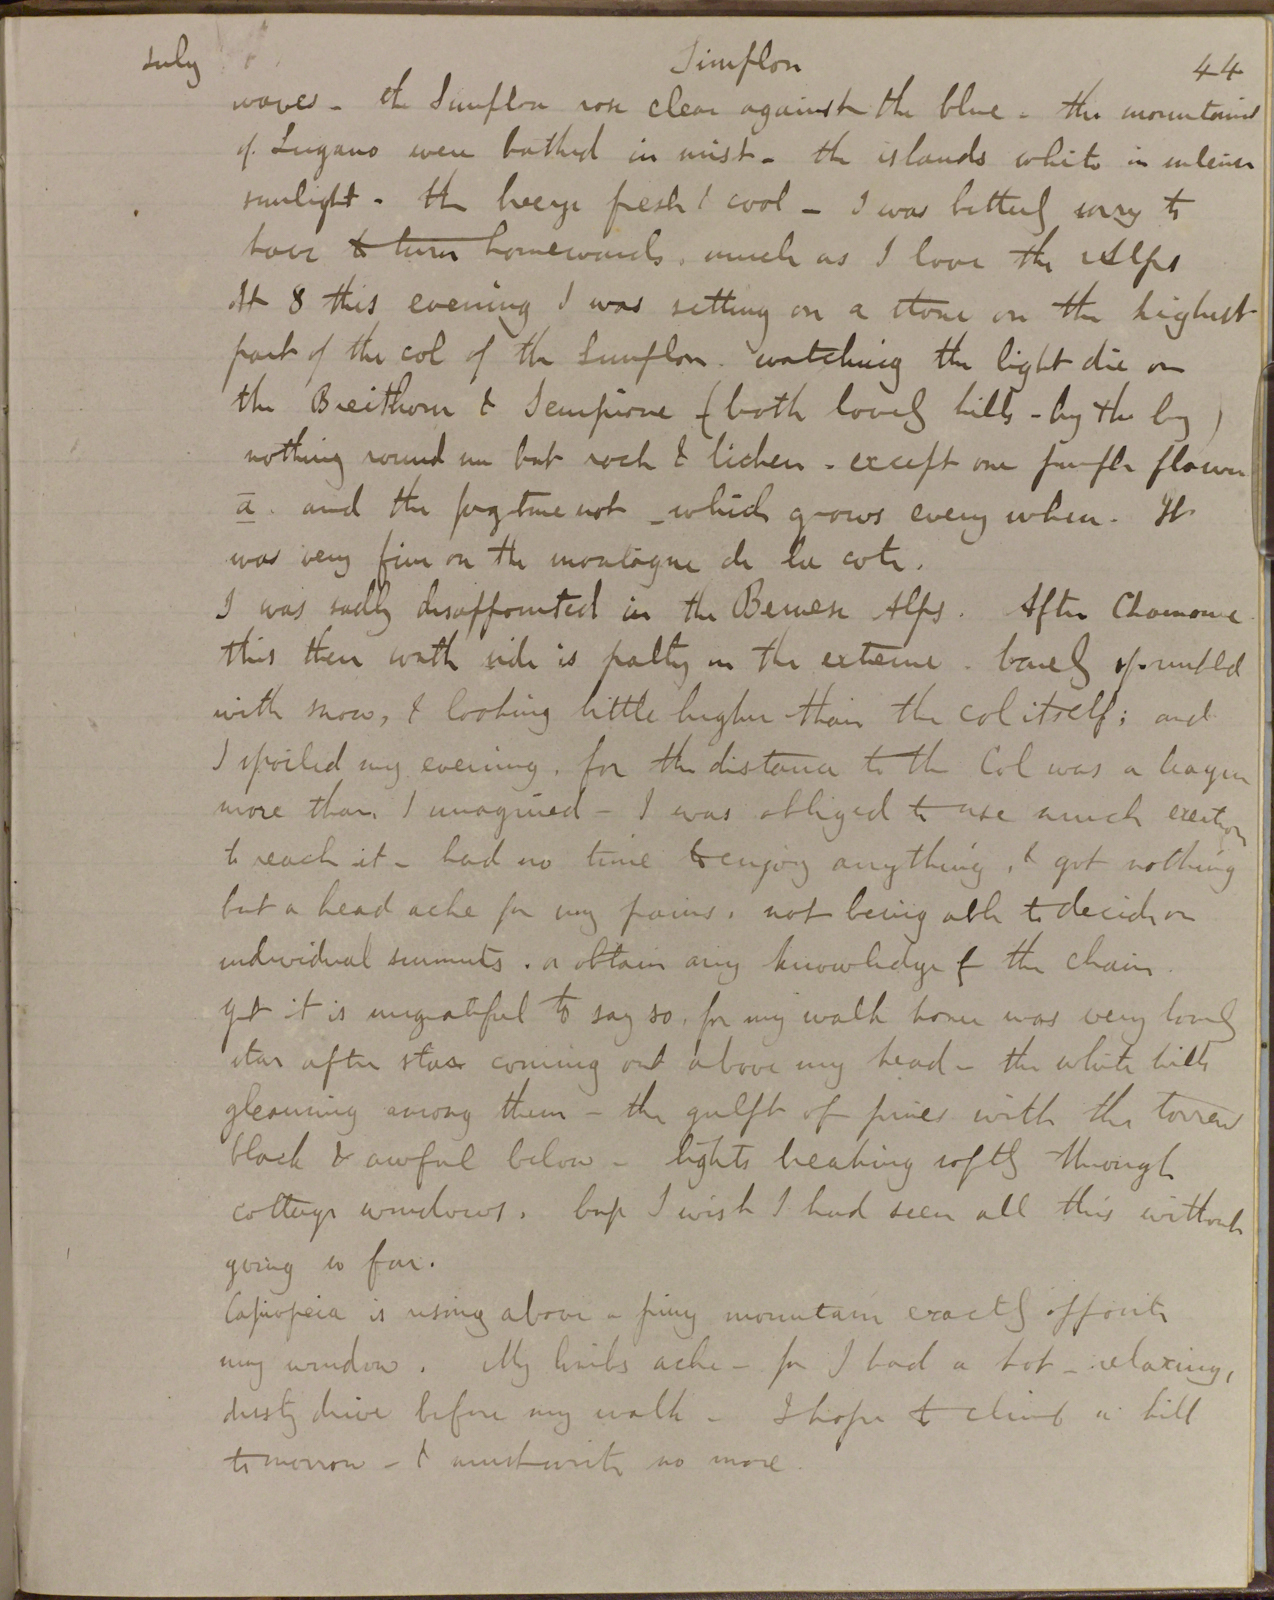 July Simplon 44
waves - the Simplon rose clear against the blue - the mountains
of Lugano were bathed in mist - the islands white in intense
sunlight - the breeze fresh & cool - I was bitterly sorry to
have to turn homewards, much as I love the Alps
At 8 this evening I was sitting on a stone on the highest
part of the col of the Simplon. watching the light die on
the Breithorn & Sempione (both lovely hills - by the by)
nothing round me but rock & lichen - except one purple flower
a. and the forgetmenot - which grows every where. It
was very fine on the montagne de la cote.
I was sadly disappointed in the Bernese Alps. After Chamonie
this their south side is paltry in the extreme. barely sprinkled
with snow, & looking little higher than the col itself; and
I spoiled my evening, for the distance to the Col was a league
more than I imagined - I was obliged to use much exertion
to reach it - had no time to enjoy anything, & got nothing
but a head ache for my pains, not being able to decide on
individual summits, or obtain any knowledge of the chain.
yet it is ungrateful to say so, for my walk home was very lovely
star after star coming out above my head - the white hills
gleaming among them - the gulph of pines with the torrent
black & awful below - lights breaking softly through
cottage windows. but I wish I had seen all this without
going so far.
Cassiopeia is rising above a piny mountain exactly opposite
my window. My limbs ache - for I had a hot - relaxing,
dusty drive before my walk - I hope to climb a hill
tomorrow - & must write no more.